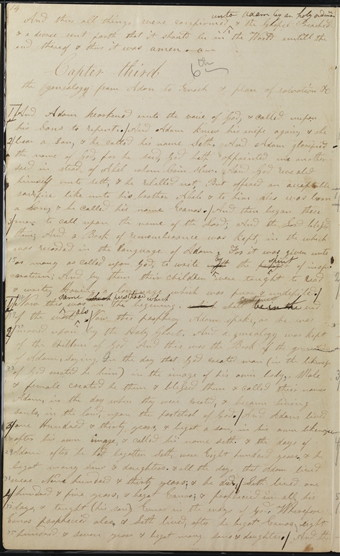 unto Adam by an holy ordina
And thus all things were confirmed & the Gospel preached
& a decree sent forth that it should be in the World untill the
end thereof & thus it was amen
Capter third
6th
the geneology from Adam to Enock & plan of salvation &c
And Adam hearkned unto the voice of God, & called upon
his sons to repent. And Adam knew his wife again, & she
bear a son, & he called his name Seth. And Adam glorified
the name of God, for he said God hath appointed me another
seed in sted of Abel whom Cain slew. And God revealed
himself unto Seth, & he rebelled not, but offered an acceptable
sacrifice like unto his brother Abel. & to him also was born
a son, & he called his name Enos. And then began these
men to call upon the name of the Lord, And the Lord blessed
them And a Book of remembrance was kept, in the which
was recorded in the language of Adam, For it was given unto
as many as called upon God, to write by the spirit of inspi
ration; And by them their children were taught to read
& write, having a language which was pure & undefiled
same which
of the world
for this prophecy Adam spake, as he was
moved upon by the Holy Ghost. And a geneology was kept
of the children of God. And this was the Book of the generations
of Adam, saying, In the day that God created man (in the likeness
of God created he him) in the image of his own body, Male
& female created he them & blessed them & called their name
Adam, in the day when they were created, & became living
souls, in the land, upon the footstool of God. And Adam lived
one hundred & thirty years, & begat a son in his own likeness
after his own image, & called his name Seth. & the days of
Adam after he had begotten Seth, were Eight hundred years, & he
begat many sons & daughters. & all the days that Adam lived
were nine hundred & thirty years, & he died. Seth lived one
hundred & five years, & begat Enos, & prophecied in all his
days, & taught his son Enos in the ways of God. Wherefore
Enos prophecied also, & Seth lived, after he begat Enos, eight
hundred & seven years & begat many sons & daughters. And the